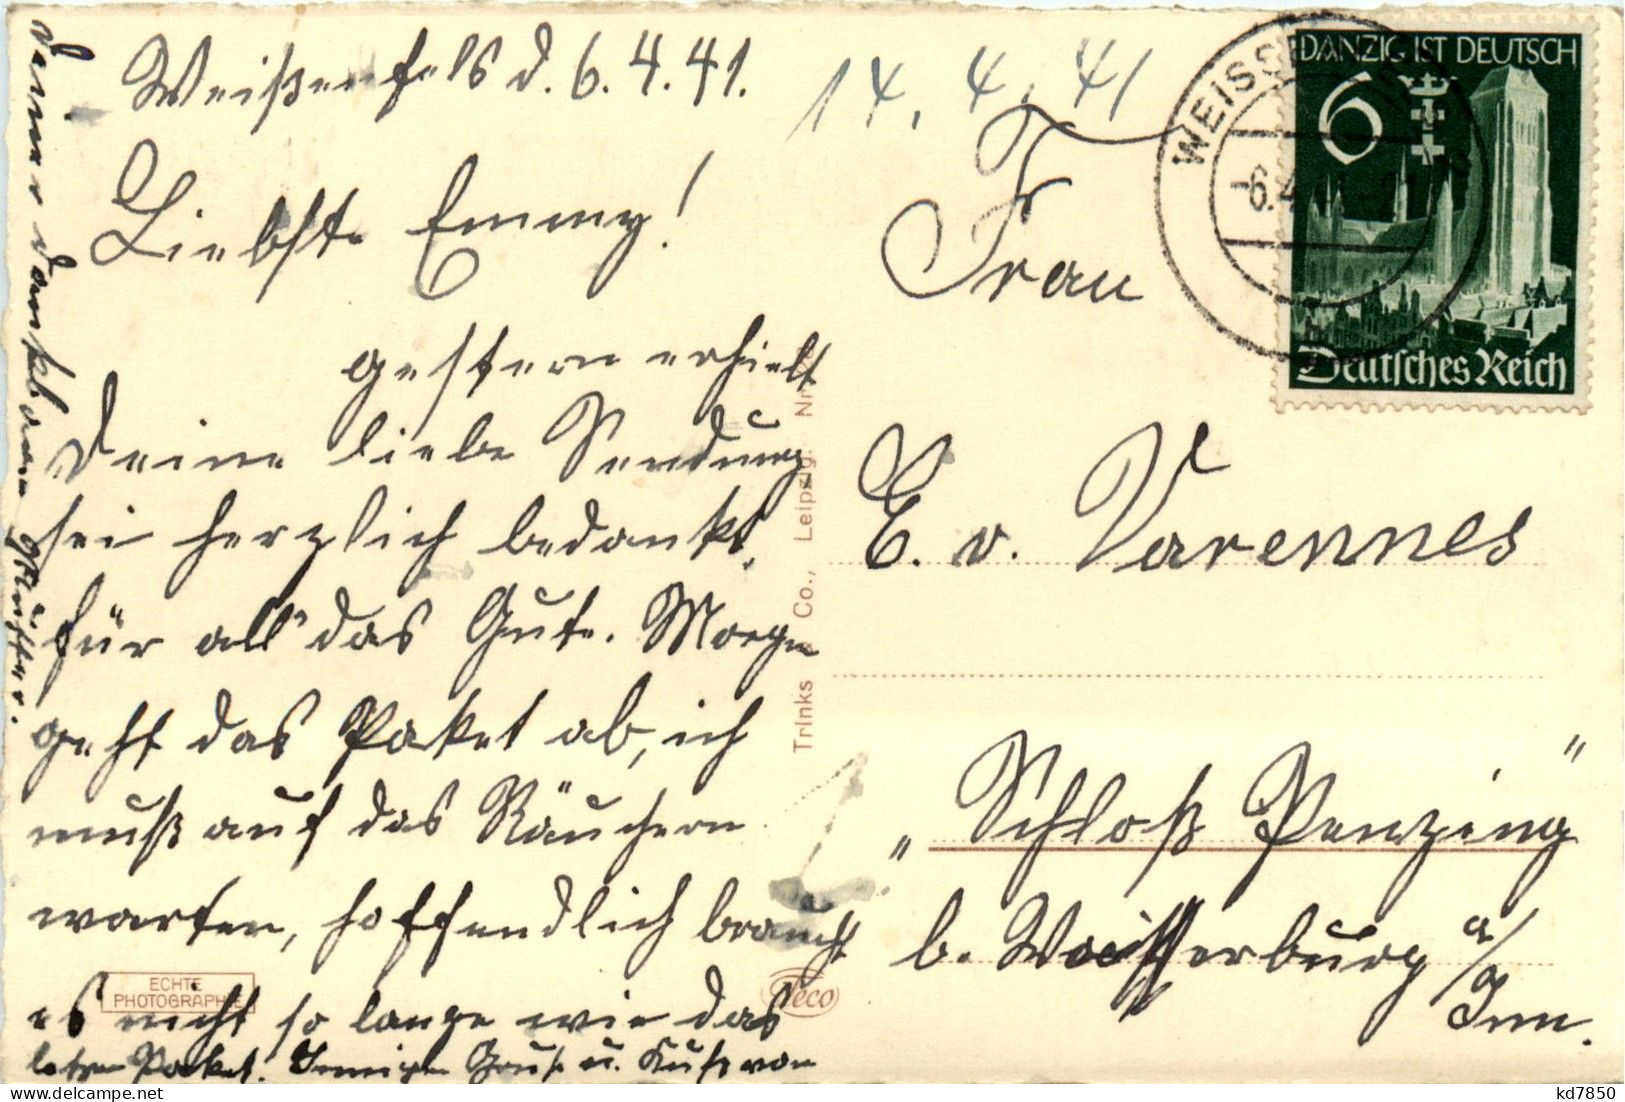 Weißenfels d. 6. 4. 41.
14. 4. 41
Liebste Emmy!
gestern erhielt
Deine liebe Sendung
sei herzlich bedankt,
für all' das Gute. Morgen
geht das Paket ab, ich
muß auf das Räuchern
warten, hoffendlich braucht
es nicht so lange wie das
letzte Paket. Innigen Gruß u. Kuß von
Deiner dankbaren Mutter.
ECHTE
PHOTOGRAPHIE
Trinks Co., Leipzig. Nr.
Teco
WEISSENFELS
-6.4.
DANZIG IST DEUTSCH
6
Deutsches Reich
Frau
E. v. Varennes
"Schloß Penzing"
b. Wasserburg a/
Inn.
kd7850